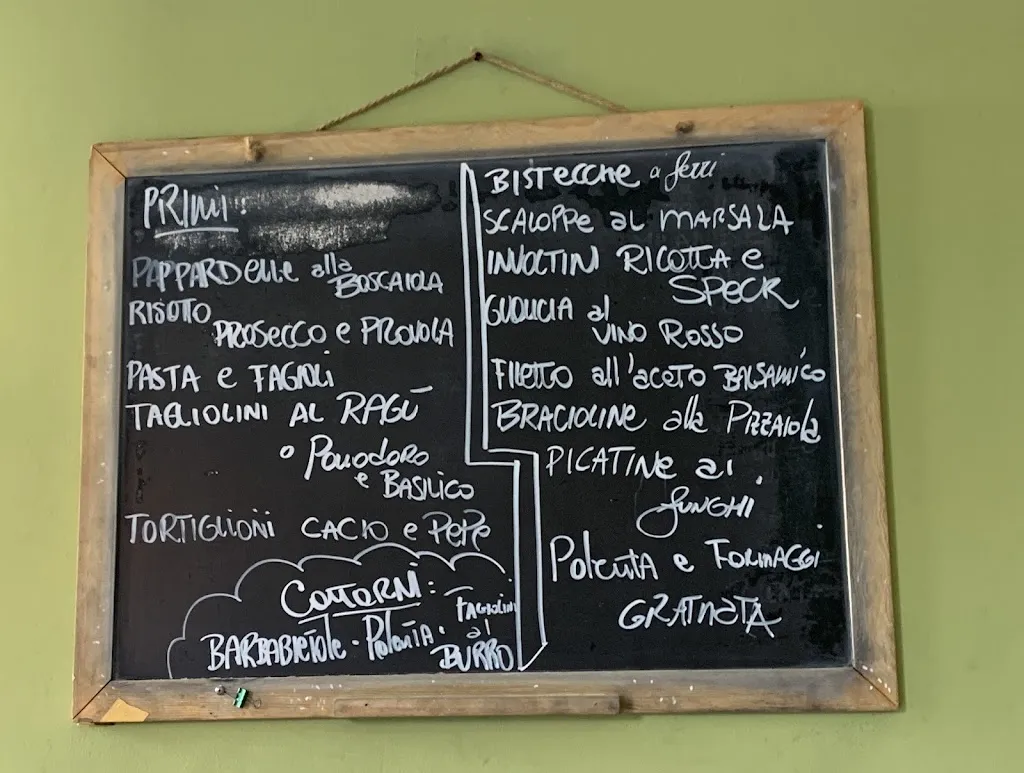 PRIMI:
PAPPARDELLE alla
BOSCAIOLA
RISOTTO
PROSECCO e PROVOLA
PASTA e FAGIOLI
TAGLIOLINI AL RAGÚ
o POMODORO
e BASILICO
TORTIGLIONI CACIO e PEPE
CONTORNI:
BARBABIETOLE - POLENTA - FAGIOLINI
al
BURRO
BISTECCHE a ferri
SCALOPPE al MARSALA
INVOLTINI RICOTTA e
SPECK
GUANCIA al
VINO ROSSO
FILETTO all'aceto BALSAMICO
BRACIOLINE alla PIZZAIOLA
PICATINE ai
FUNGHI
POLENTA e FORMAGGI
GRATINATA